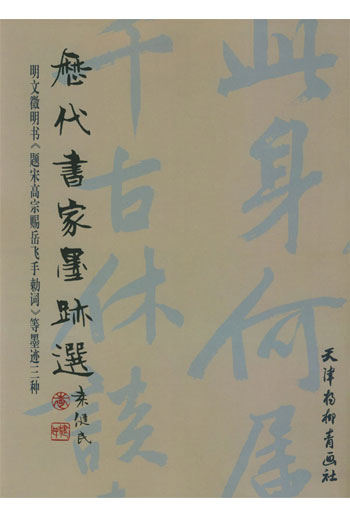 此身何属
千古休谈
歷代書家墨跡選
秦健民
明文徵明书《题宋高宗赐岳飞手勅词》等墨迹三种
天津杨柳青画社